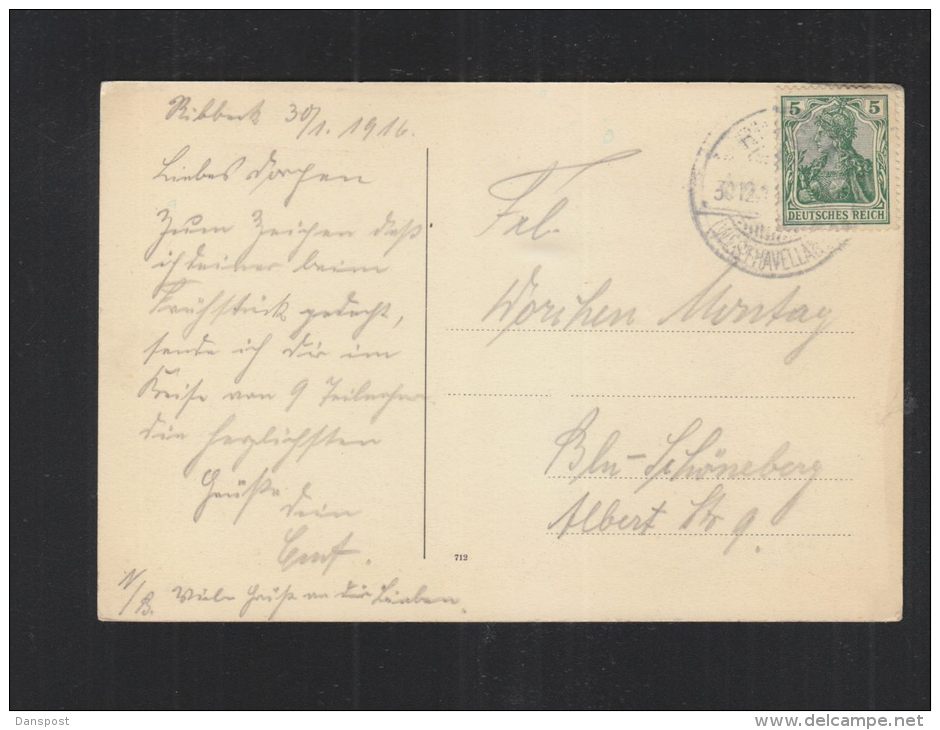 Ribbeck 30/1. 1916.
Liebes Dorchen
Zum Zeichen daß
ich deiner beim
Frühstück gedacht,
sende ich dir im
Kreise von 9 Teilnehmer
die herzlichsten
Grüße
dein
N/B. Viele Grüße an die Lieben.
Frl.
Dorchen Montag
Bln-Schöneberg
Albert Str 9.
712
5 5
DEUTSCHES REICH
30.12.1
(WESTHAVELLAND
Danspost
delcampe.net